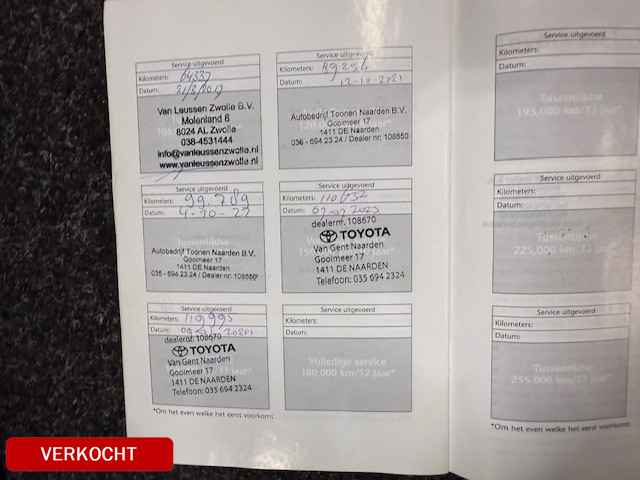 Service uitgevoerd
Kilometers: 64337
Datum:
Van Leussen Zwolle B.V.
Molenland 6
8024 AL Zwolle
038-4531444
info@vanleussenzwolle.nl
www.vanleussenzwolle.nl
Service uitgevoerd
Kilometers: 89256
Datum: 12-10-2021
Autobedrijf Toonen Naarden B.V.
Gooimeer 17
1411 DE Naarden
035 - 694 23 24 / Dealer nr: 108650
Service uitgevoerd
Kilometers: 99.289
Datum: 4-10-22
Autobedrijf Toonen Naarden B.V.
Gooimeer 17
1411 DE Naarden
035 - 694 23 24 / Dealer nr: 108650
Service uitgevoerd
Kilometers: 110.
Datum: 2023
dealernr. 108670
TOYOTA
Van Gent Naarden
Gooimeer 17
1411 DE NAARDEN
Telefoon: 035 694 2324
Service uitgevoerd
Kilometers: 119.995
Datum:
dealernr. 108670
TOYOTA
Van Gent Naarden
Gooimeer 17
1411 DE NAARDEN
Telefoon: 035 694 2324
Service uitgevoerd
Kilometers:
Datum:
Volledige service
180.000 km/12 jaar*
*Om het even welke het eerst voorkomt.
Service uitgevoerd
Kilometers:
Datum:
Tussentijdse
195.000 km/13 jaar*
Service uitgevoerd
Kilometers:
Datum:
225.000 km/
Service uitgevoerd
Kilometers:
Datum:
Tussentijdse
255.000 km/
*Om het even welke het eerst voorkomt
VERKOCHT